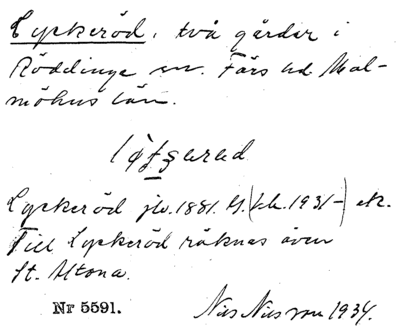 Lyckeröd, två gårdar i
Röddinge sn. Färs hd Mal-
möhus län.
Lyckeröd jb. 1881. (kk. 1931-)
Till Lyckeröd räknas även
St. Altona.
Nr 5591. Nils Nilsson 1934.